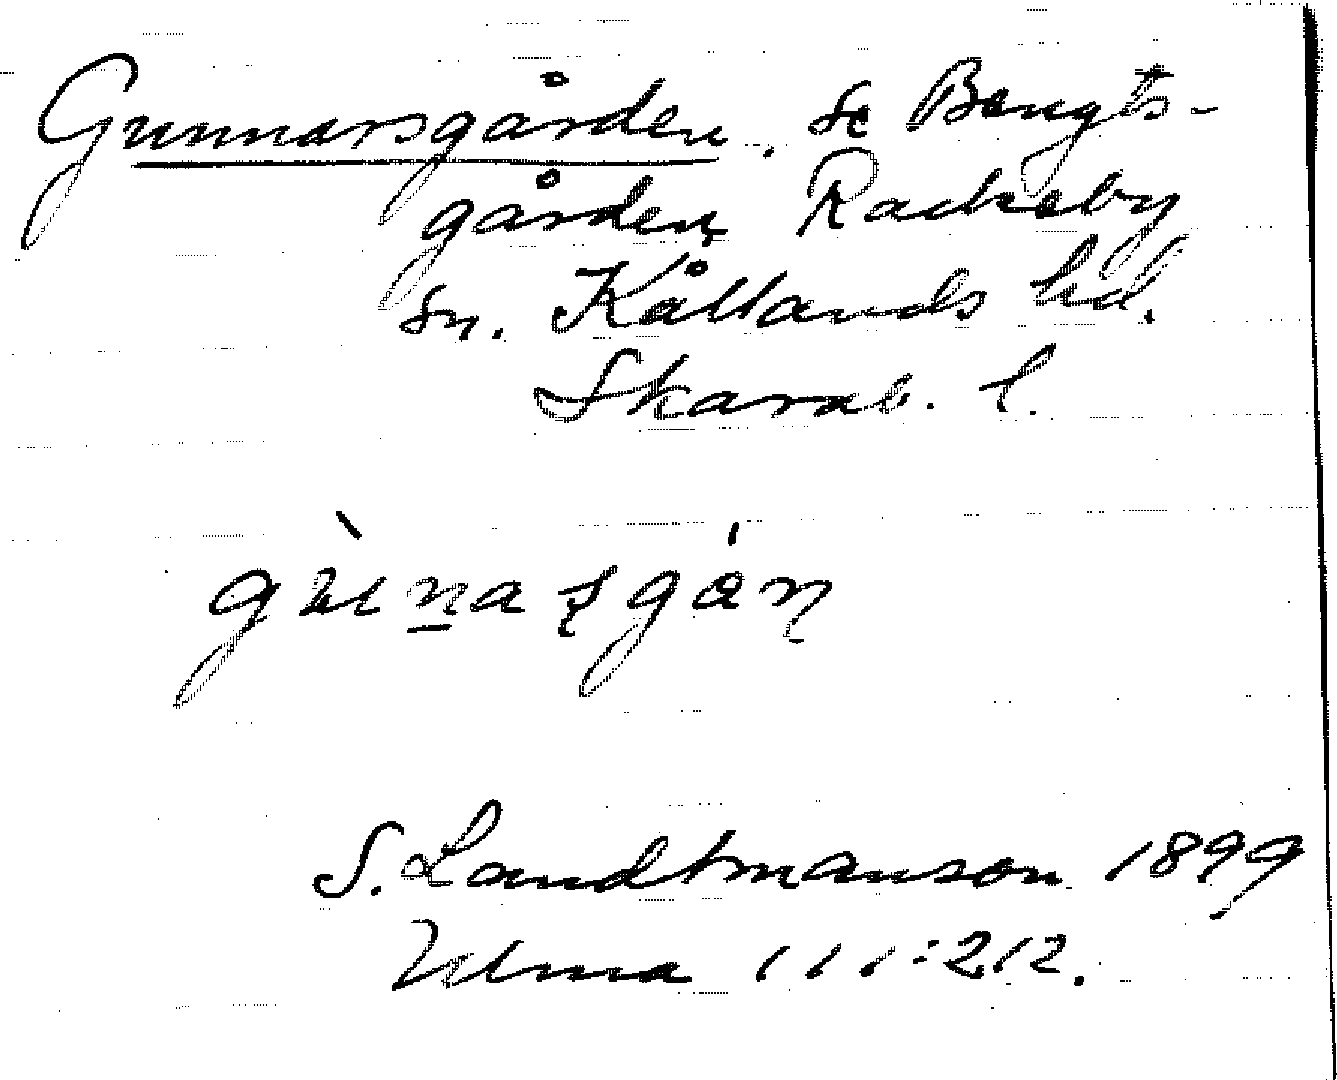 Gunnarsgården, se Bengts-
gården, Rackeby
sn. Kållands hd.
Skarab. l.
S. Landtmanson 1899
Ulma 111:212.